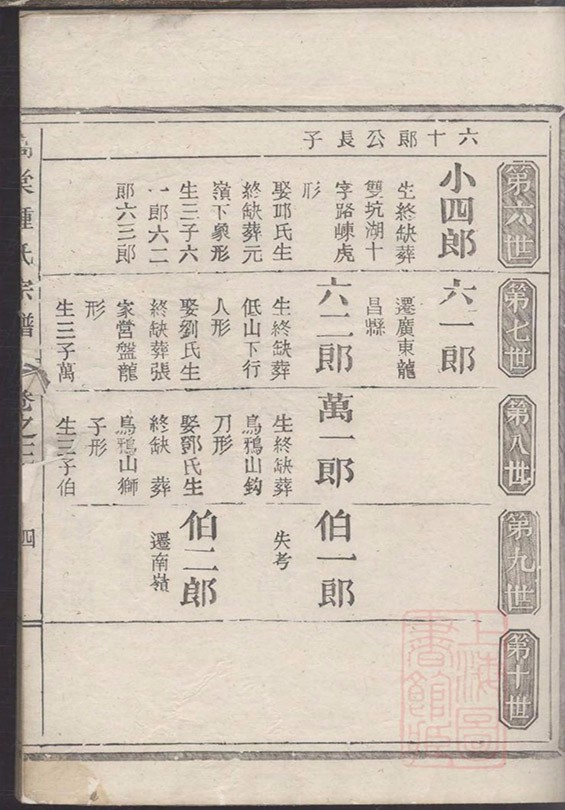 六十郎公長子
第六世
小四郎
生終缺葬
雙坑湖十
字路崠虎
形
娶邱氏生
終缺葬元
嶺下象形
生三子六
一郎六二
郎六三郎
第七世
六一郎
遷廣東龍
昌縣
六二郎
生終缺葬
低山下行
人形
娶劉氏生
終缺葬張
家営盤龍
形
生三子萬
第八世
萬一郎
生終缺葬
烏鴉山鈎
刀形
娶鄧氏生
終缺葬
烏鴉山獅
子形
生三子伯
第九世
伯一郎
失考
伯二郎
遷南嶺
第十世
鍾氏宗譜
卷之三
四
上海圖
書館